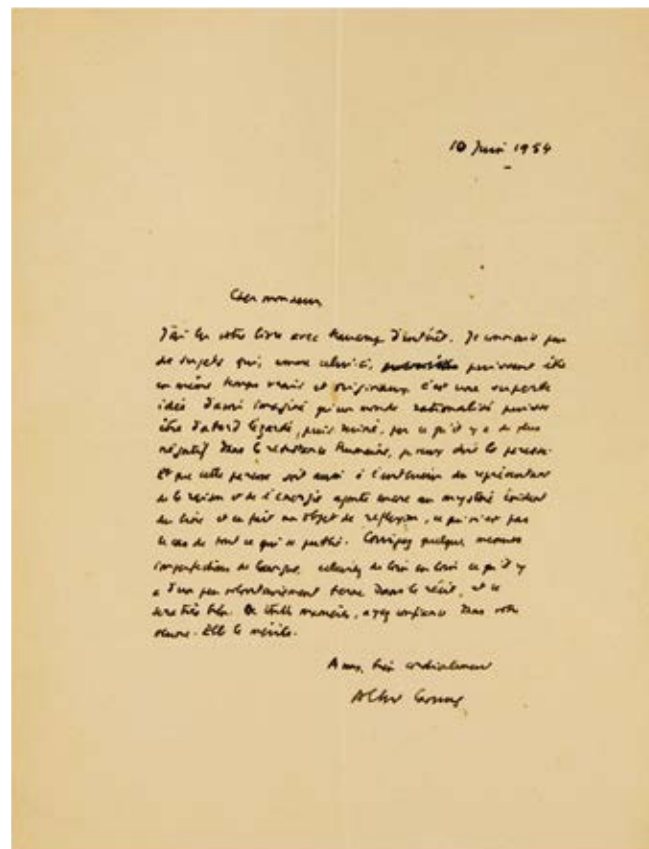 10 Juin 1954
Cher monsieur
J'ai lu votre livre avec beaucoup d'intérêt. Je connais peu
de sujets qui, comme celui-ci, puissent être
en même temps vrais et originaux. C'est une superbe
idée d'avoir imaginé qu'un monde rationalisé puisse
être d'abord, puis miné, par ce qu'il y a de plus
négatif dans la résistance humaine, je veux dire la paresse.
Et que cette paresse soit aussi à l'intérieur du représentant
de la raison et de l'énergie ajoute encore au mystère évident
du livre et en fait un objet de réflexion, ce qui n'est pas
le cas de tout ce qui se publie. Corrigez quelques menues
imperfections de langue, de loin en loin ce qu'il y
a d'un peu volontairement terne dans le récit, et ce
sera très bien. De toute manière, ayez confiance dans votre
œuvre. Elle le mérite.
A vous, bien cordialement
Albert Camus